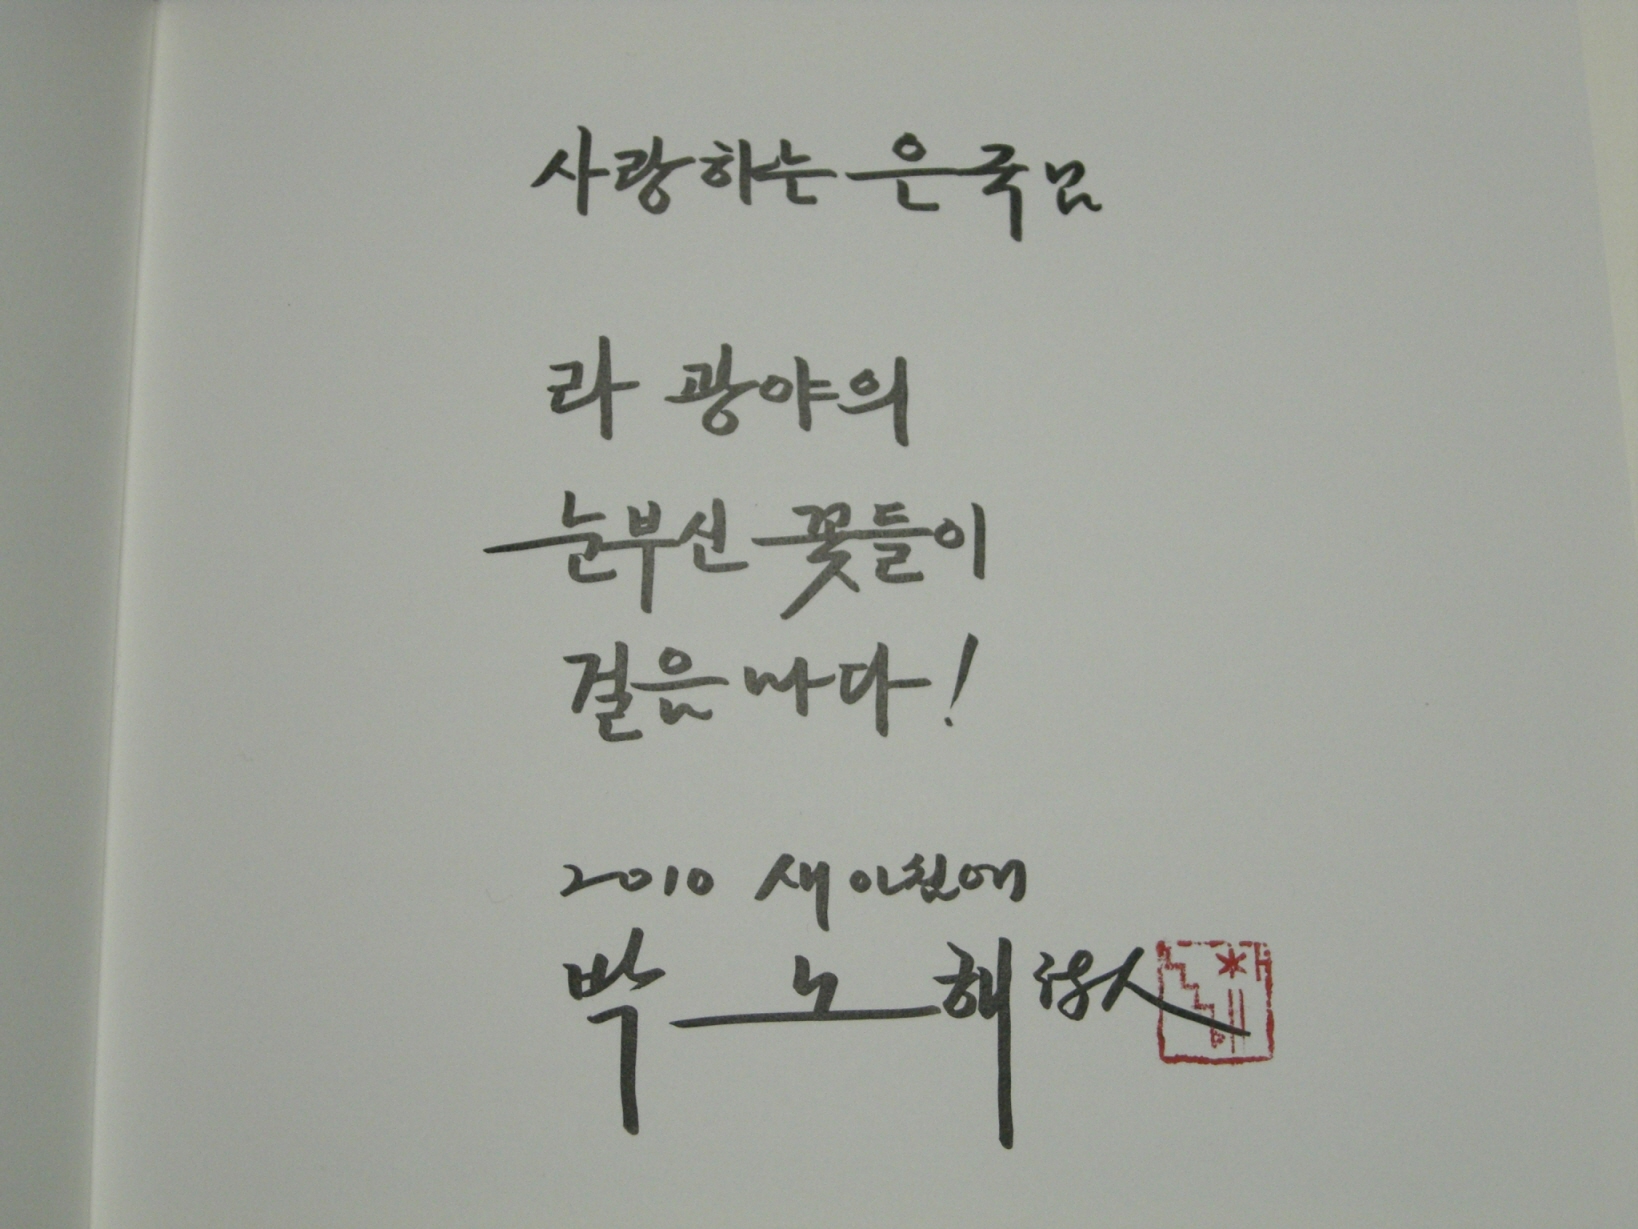 사랑하는 은국님
라 광야의
눈부신 꽃들이
걸음마다!
2010 새 아침에
박 노 해 詩人